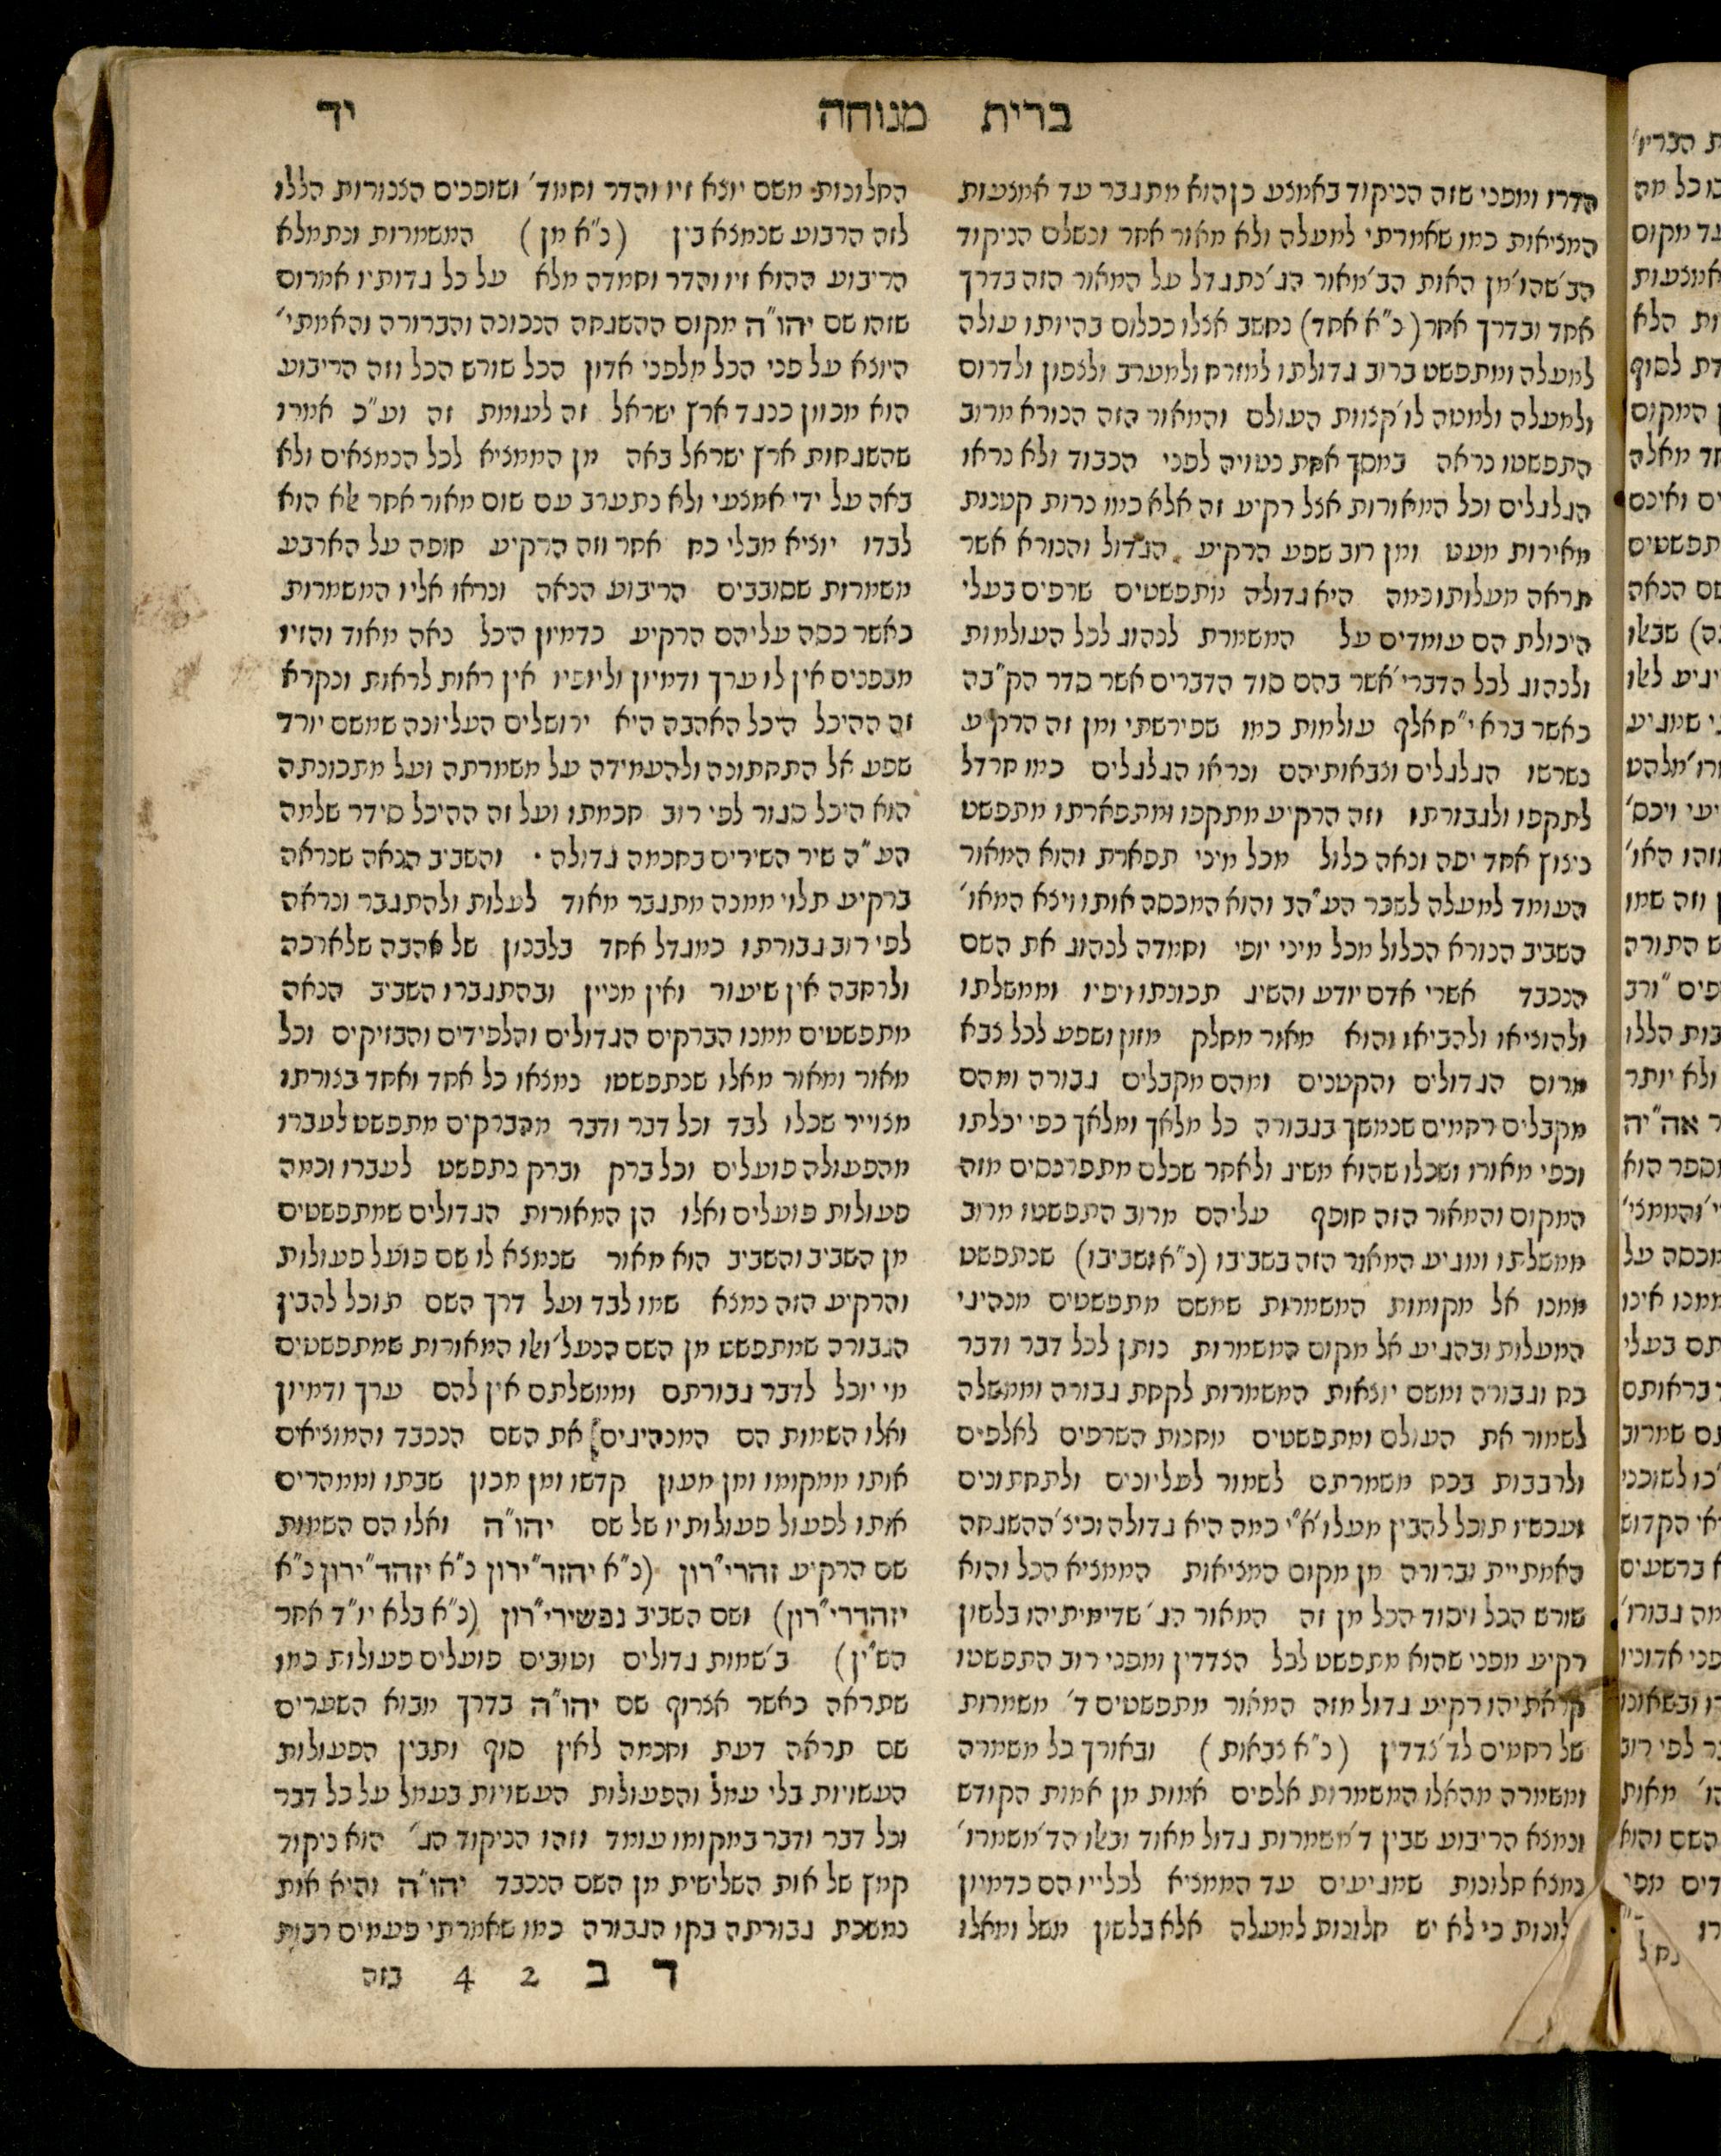 ברית מנוחה יד
הדרו ומפני שזה הניקוד באמצע כן הוא מתגבר עד אמצעות
המציאות כמו שאמרתי למעלה ולא מאור אחר וכשלם הניקוד
הב׳ שהו׳ מן האות הב׳ מאור הג׳ נתגדל על המאור הזה בדרך
אחד ובדרך אחר (נ״א אחד) נחשב אצלו ככלום בהיותו עולה
למעלה ומתפשט ברוב גדולתו למזרח ולמערב ולצפון ולדרום
ולמעלה ולמטה לו׳ קצוות העולם והמאור הזה הנורא מרוב
התפשטו נראה במסך אחת נטויה לפני הכבוד ולא נראו
הגלגלים וכל המאורות אצל רקיע זה אלא כמו נרות קטנות
מאירות מעט ומן רוב שפע הרקיע הגדול והנורא אשר
תראה מעלותו כמה היא גדולה מתפשטים שרפים בעלי
היכולת הם עומדים על המשמרת לנהוג לכל העולמות
ולנהוג לכל הדברי׳ אשר בהם סוד הדברים אשר סדר הק״בה
כאשר ברא י״ח אלף עולמות כמו שפירשתי ומן זה הרקיע
נשרשו הגלגלים וצבאותיהם ונראו הגלגלים כמו חרדל
לתקפו ולגבורתו וזה הרקיע מתקפו ומתפארתו מתפשט
ניצוץ אחד יפה ונאה כלול מכל מיני תפארת והוא המאור
העומד למעלה לשבר הע״הב והוא המכסה אותו ויצא המאו׳
השביב הנורא הכלול מכל מיני יופי וחמדה לנהוג את השם
הנכבד אשרי אדם יודע והשיג תכונתו ויפיו וממשלתו
ולהוציאו ולהביאו והוא מאור מחלק מזון ושפע לכל צבא
מרום הגדולים והקטנים ומהם מקבלים גבורה ומהם
מקבלים רחמים שנמשך בגבורה כל מלאך ומלאך כפי יכלתו
וכפי מאורו ושכלו שהוא משיג ולאחר שכלם מתפרנסים מזה
המקום והמאור הזה חופף עליהם מרוב התפשטו מרוב
ממשלתו ומגיע המאור הזה בשביבו (נ״א ושביבו) שנתפשט
ממנו אל מקומות המשמרות שמשם מתפשטים מנהיגי
המעלות ובהגיע אל מקום המשמרות נותן לכל דבר ודבר
כח וגבורה ומשם יוצאות המשמרות לקחת גבורה וממשלה
לשמור את העולם ומתפשטים מחנות השרפים לאלפים
ולרבבות בכח משמרתם לשמור לעליונים ולתחתונים
ועכשיו תוכל להבין מעלו׳ א״י כמה היא גדולה וכיצ׳ ההשגחה
האמתיית וברורה מן מקום המציאות הממציא הכל והוא
שורש הכל ויסוד הכל מן זה המאור הג׳ שדימיתיהו בלשון
רקיע מפני שהוא מתפשט לכל הצדדין ומפני רוב התפשטו
קראתיהו רקיע גדול מזה המאור מתפשטים ד׳ משמרות
של רחמים לד׳ צדדין (נ״א צבאות) ובאורך כל משמרה
ומשמרה מהאלו המשמרות אלפים אמות מן אמות הקודש
ונמצא הריבוע שבין ד׳ משמרות גדול מאוד ובאלו הד׳ משמרו׳
נמצא חלונות שמגיעים עד הממציא לכלייו הם כדמיון
לונות כי לא יש חלונות למעלה אלא בלשון משל ומאלו
החלונות משם יוצא זיו והדר וחמד׳ ושופכים הצנורות הללו
לזה הרבוע שנמצא בין (נ״א מן) המשמרות ונתמלא
הריבוע ההוא זיו והדר וחמדה מלא על כל גדותיו אמרום
שזהו שם יהו״ה מקום ההשגחה הנכונה והברורה והאמתי׳
היוצא על פני הכל מלפני אדון הכל שורש הכל וזה הריבוע
הוא מכוון כנגד ארץ ישראל זה לעומת זה וע״כ אמרו
שהשגחות ארץ ישראל באה מן הממציא לכל הנמצאים ולא
באה על ידי אמצעי ולא נתערב עם שום מאור אחר אלא הוא
לבדו יוציא מבלי כח אחר וזה הרקיע חופה על הארבע
משמרות שסובבים הריבוע הנאה ונראו אליו המשמרות
כאשר כסה עליהם הרקיע כדמיון היכל נאה מאוד והזיו
מבפנים אין לו ערך ודמיון וליופיו אין ראות לראות ונקרא
זה ההיכל היכל האהבה היא ירושלים העליונה שמשם יורד
שפע אל התחתונה ולהעמידה על משמרתה ועל מתכונתה
הוא היכל סגור לפי רוב חכמתו ועל זה ההיכל סידר שלמה
הע״ה שיר השירים בחכמה גדולה • והשביב הנאה שנראה
ברקיע תלוי ממנה מתגבר מאוד לעלות ולהתגבר ונראה
לפי רוב גבורתו כמגדל אחד בלבנון של אהבה שלארכה
ולרחבה אין שיעור ואין מניין ובהתגברו השביב הנאה
מתפשטים ממנו הברקים הגדולים והלפידים והבזיקים וכל
מאור ומאור מאלו שנתפשטו נמצאו כל אחד ואחד בצורתו
מצוייר שכלו לבד וכל דבר ודבר מהברקים מתפשט לעברו
מהפעולה פועלים וכל ברק וברק נתפשט לעברו וכמה
פעולות פועלים ואלו הן המאורות הגדולים שמתפשטים
מן השביב והשביב הוא מאור שנמצא לו שם פועל פעולות
והרקיע הזה נמצא שמו לבד ועל דרך השם תוכל להבין
הגבורה שמתפשט מן השם הנעל׳ ואלו המאורות שמתפשטים
מי יוכל לדבר גבורתם וממשלתם אין להם ערך ודמיון
ואלו השמות הם המנהיגים] את השם הנכבד והמוציאים
אותו ממקומו ומן מעון קדשו ומן מכון שבתו וממהרים
אותו לפעול פעולותיו של שם יהו״ה ואלו הם השמות
שם הרקיע זהרי״רון (נ״א יהזר״ירון נ״א יזהד״ירון נ״א
יזהדרי״רון) ושם השביב נפשירי״רון (נ״א בלא יו״ד אחר
הש״ין) ב׳ שמות גדולים וטובים פועלים פעולות כמו
שתראה כאשר אצרוף שם יהו״ה בדרך מבוא השערים
שם תראה דעת וחכמה לאין סוף ותבין הפעולות
העשויות בלי עמל והפעולות העשויות בעמל על כל דבר
וכל דבר ודבר במקומו עומד וזהו הניקוד הג׳ הוא ניקוד
קמץ של אות השלישית מן השם הנכבד יהו״ה והיא אות
נמשכת גבורתה בקו הגבורה כמו שאמרתי פעמים רבות
ד ב 2 4 בזה